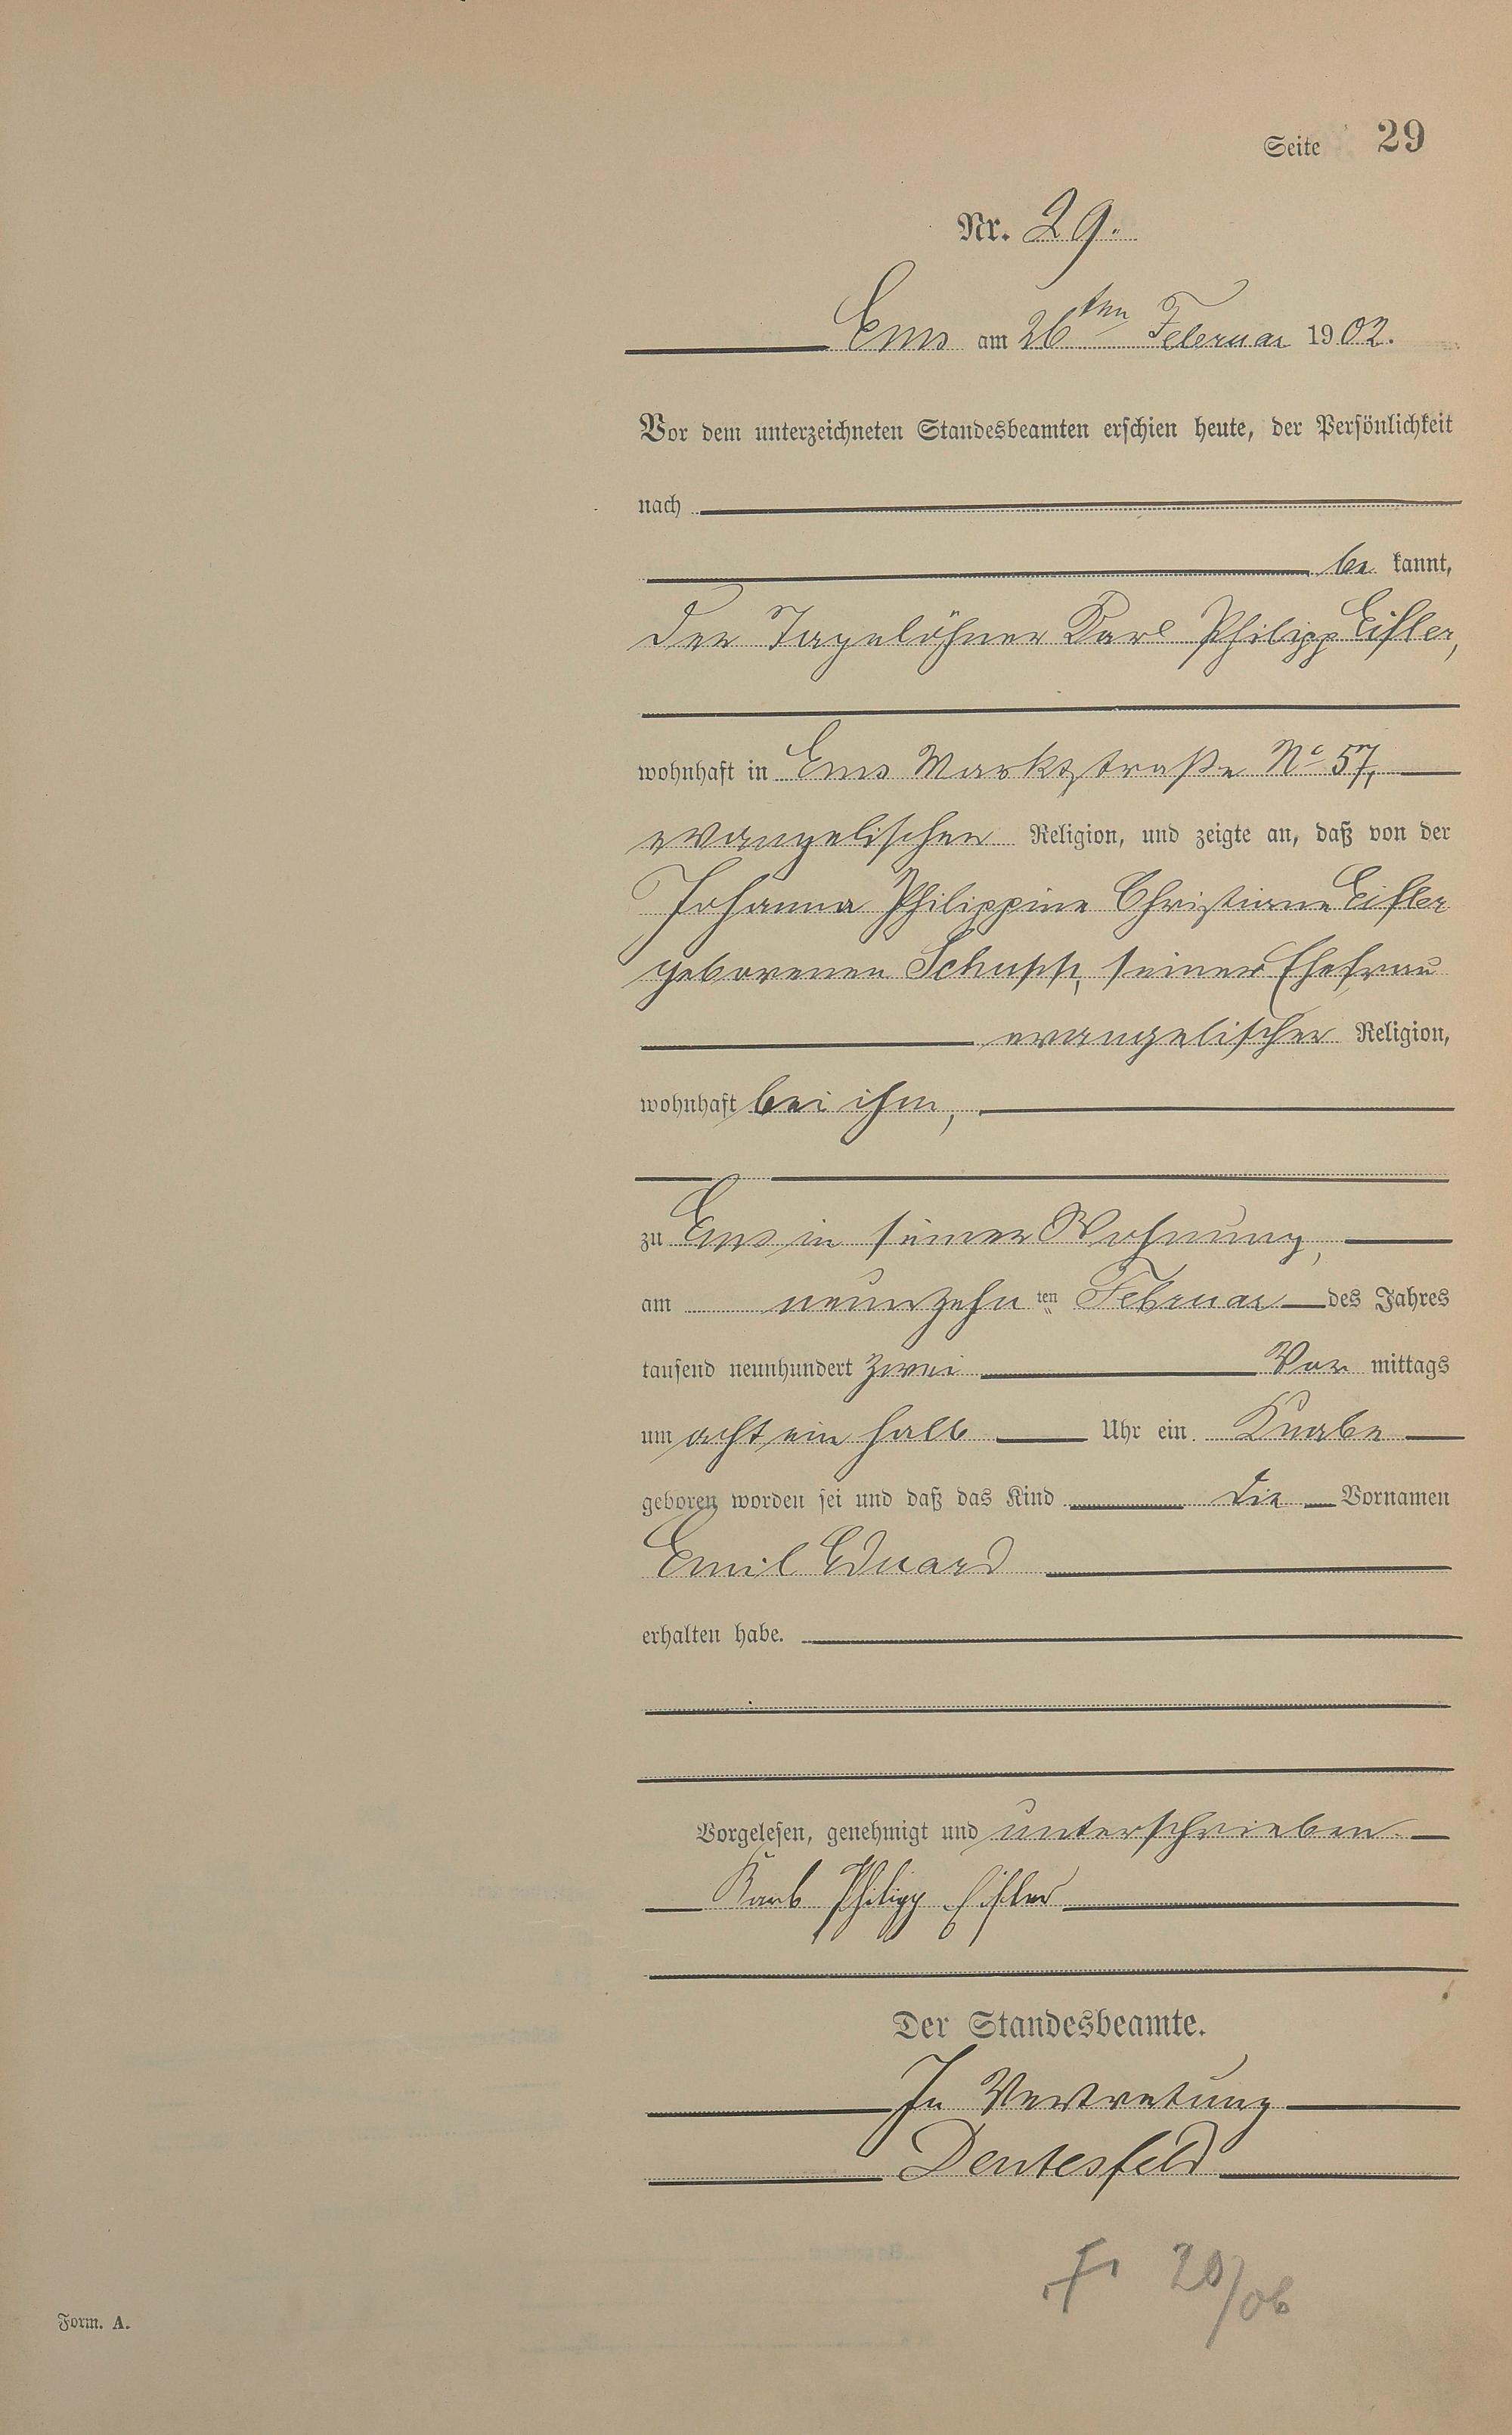 Seite 29
Nr. 29.
Ems am 26ten Februar 1902.
Vor dem unterzeichneten Standesbeamten erschien heute, der Persönlichkeit
nach
be kannt,
der Tagelöhner Karl Philipp Eisler,
wohnhaft in Ems Marktstraße No 57,
evangelischer Religion, und zeigte an, daß von der
Johanna Philippine Christiane Eisler
geborenen Schupp, seiner Ehefrau
evangelischer Religion,
wohnhaft bei ihm,
zu Ems in seiner Wohnung,
am neunzehn ten Februar des Jahres
tausend neunhundert zwei Vor mittags
um acht ein halb Uhr ein Knabe
geboren worden sei und daß das Kind die Vornamen
Emil Eduard
erhalten habe.
Vorgelesen, genehmigt und unterschrieben
Karl Philipp Eisler
Der Standesbeamte.
In Vertretung
Dentesfeld
20/06
Form. A.